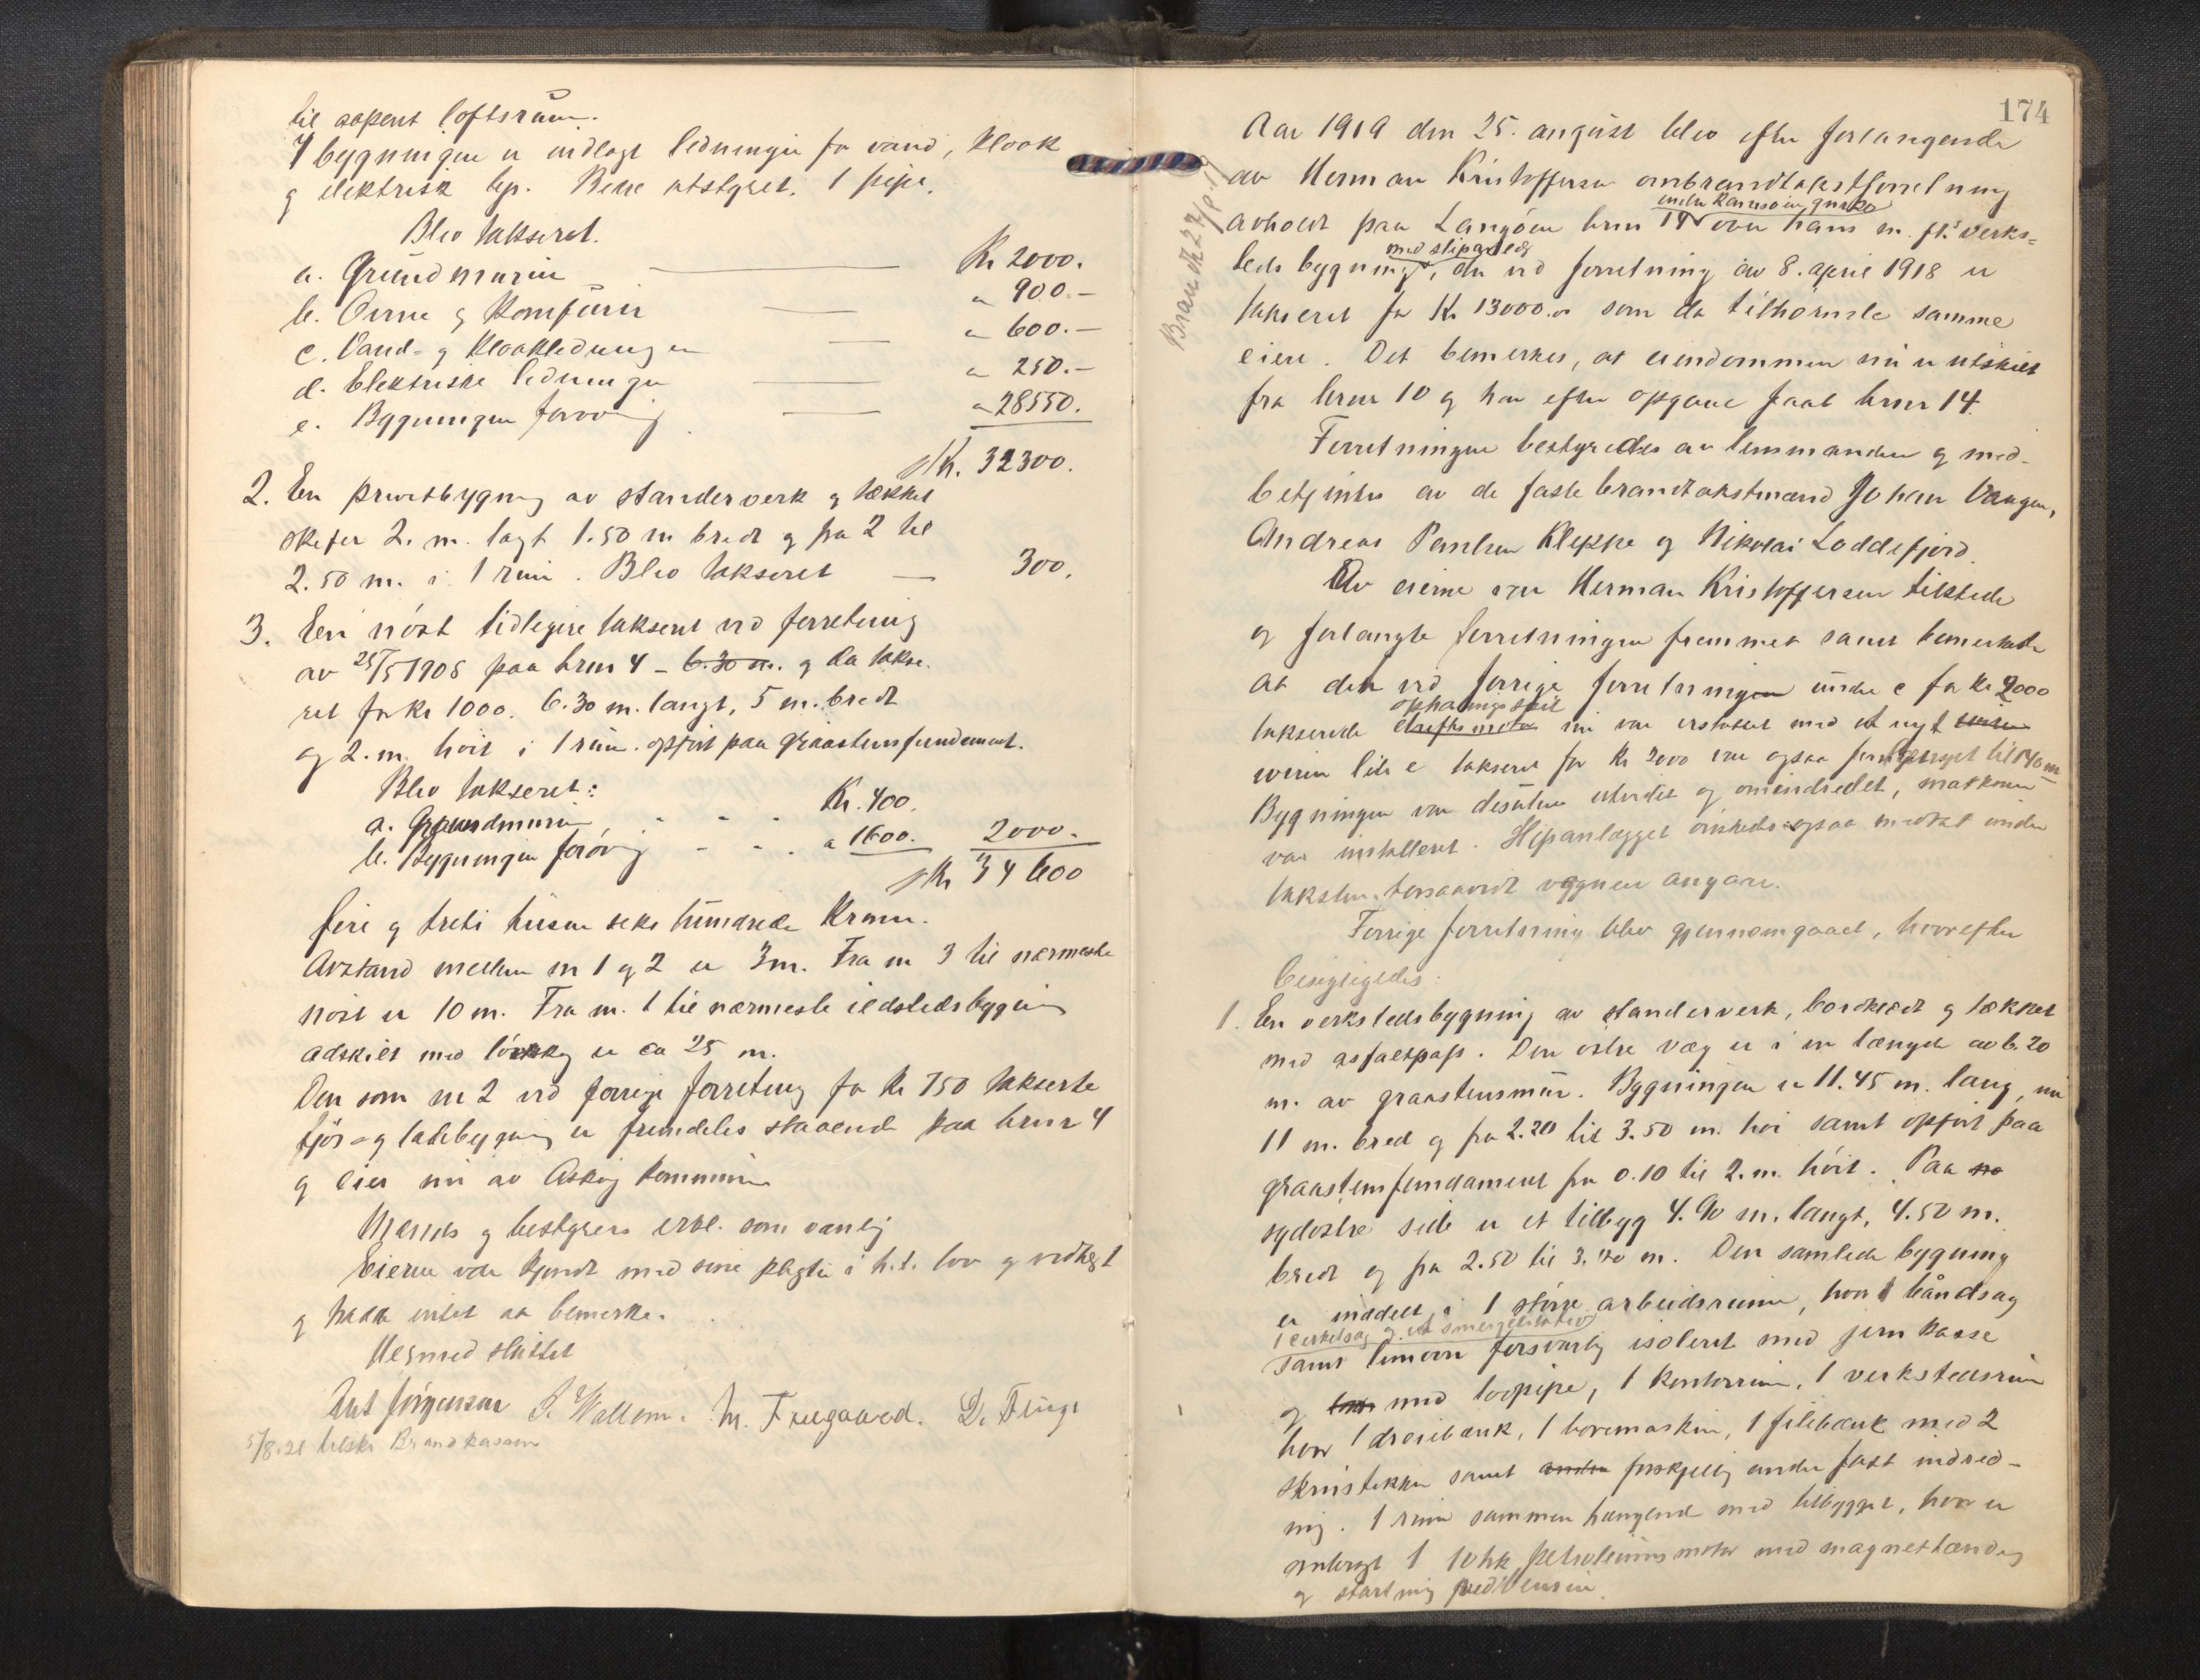 til aapent loftsrum.
I bygningen er indlagt ledninger for vand, kloak
og elektrisk lys. Bedre utstyret. 1 pipe.
Blev takseret.
a. Grundmuren Kr 2000.
b. Ovne og Komfurer " 900.-
c. Vand- og Kloakledningen " 600.-
d. Elektriske ledninger " 250.-
e. Bygningen forøvrig " 28550.
Kr. 32300.
2. En privetbygning av standerverk og tækket
skifer 2. m. langt 1.50 m bredt og fra 2 til
2.50 m. i 1 rum. Blev takseret — 300.
3. En nöst tidligere takseret ved forretning
av 25/5 1908 paa brnr 4 - 6.30 m. og da takse-
ret for kr 1000. 6.30 m. langt, 5 m. bredt
og 2. m. höit i 1 rum. opfört paa graastensfundament.
Blev takseret:
a. Grundmuren - - - Kr. 400.
b. Bygningen forövrig - - - " 1600. 2000.
Kr 34600
fire og treti tusen seks hundrede Kroner.
Avstand mellem nr 1 og 2 er 3m. Fra nr 3 til nærmeste
nöst er 10 m. Fra nr. 1 til nærmeste ildstedsbygning
adskilt med er ca 25 m.
Den som nr 2 ved forrige forretning for kr 750 takserte
fjös- og ladebygning er fremdeles staaende paa brnr 4
og eies nu av Asköy kommune
Mænds og bestyrers erkl. som vanlig
Eieren var kjendt med sine pligter i h.t. lov og vedtægt
og hadde intet at bemerke.
Hermed sluttet
Ant Jörgensen J. Wallem. M. Fruegaard. D. Fluge
5/8.21 tilskr Brandkassen
174
Brandk 27/8-19
Aar 1919 den 25. august blev efter forlangende
av Herman Kristoffersen ombrandtakstforretning
under Ramsöen, gnr 20
avholdt paa Langöen brnr 14 over hans m. fl.s verks-
med slipanlæg
tedsbygning, der ved forretning av 8. april 1918 er
takseret for Kr. 13000.00 som da tilhörende samme
eiere. Det bemerkes, at eiendommen nu er utskilt
fra brnr 10 og har efter opgave faat brnr 14.
Forretningen bestyredes av lensmanden og med-
betjentes av de faste brandtakstmænd Johan Vaagen,
Andreas Paulsen Kleppe og Nikolai Loddefjord.
Av eierne var Herman Kristoffersen tilstede
og forlangte forretningen fremmet samt bemerkede
at den ved forrige forretningen under c for kr 2000
ophalingsspil
takserede driftsmotor nu var erstattet med et nyt
litr e takseret for kr 2000 var ogsaa til 140 m
Bygningen var desuten utvidet og omindredet,
var installeret. Slipanlægget önskedes ogsaa medtat under
taksten, forsaavidt vognen angaar.
Forrige forretning blev gjennemgaaet, hvorefter
besigtigedes:
1. En verkstedsbygning av standerverk, bordklædt og tækket
med asfaltpap. Den östre væg er i en længde av 6.20
m. av graastensmur. Bygningen er 11.45 m. lang, nu
11 m. bred og fra 2.20 til 3.50 m. höi samt opfört paa
graastensfundament fra 0.10 til 2. m. höit. Paa no
sydöstre side er et tilbyg 4.90 m. langt, 4.50 m.
bredt og fra 2.50 til 3.40 m. Den samlede bygning
er inddelt i 1 större arbeidsrum, hvor 1 båndsag
1 cirkelsag og et
samt limovn forsvarlig isoleret med jern kasse
og med loppipe, 1 kontorrum, 1 verkstedsrum
hvor 1 dreiebænk, 1 boremaskin, 1 filebænk med 2
skrustikker samt anden forskjellig anden fast indred-
ning. 1 rum sammenhængende med tilbygget, hvor er
anbragt 1 10hk petroleumsmotor med magnettænding
og startning med bensin.